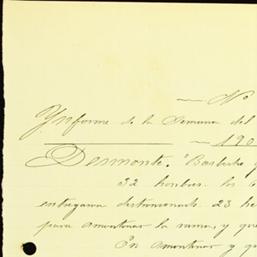 — Nº
Ynforme de la Semana del
— 190
Desmonte. Barbecho y
32 hombres los
entregaron destroncado 23 he
para amontonar la rama, y que
En amontonar y q